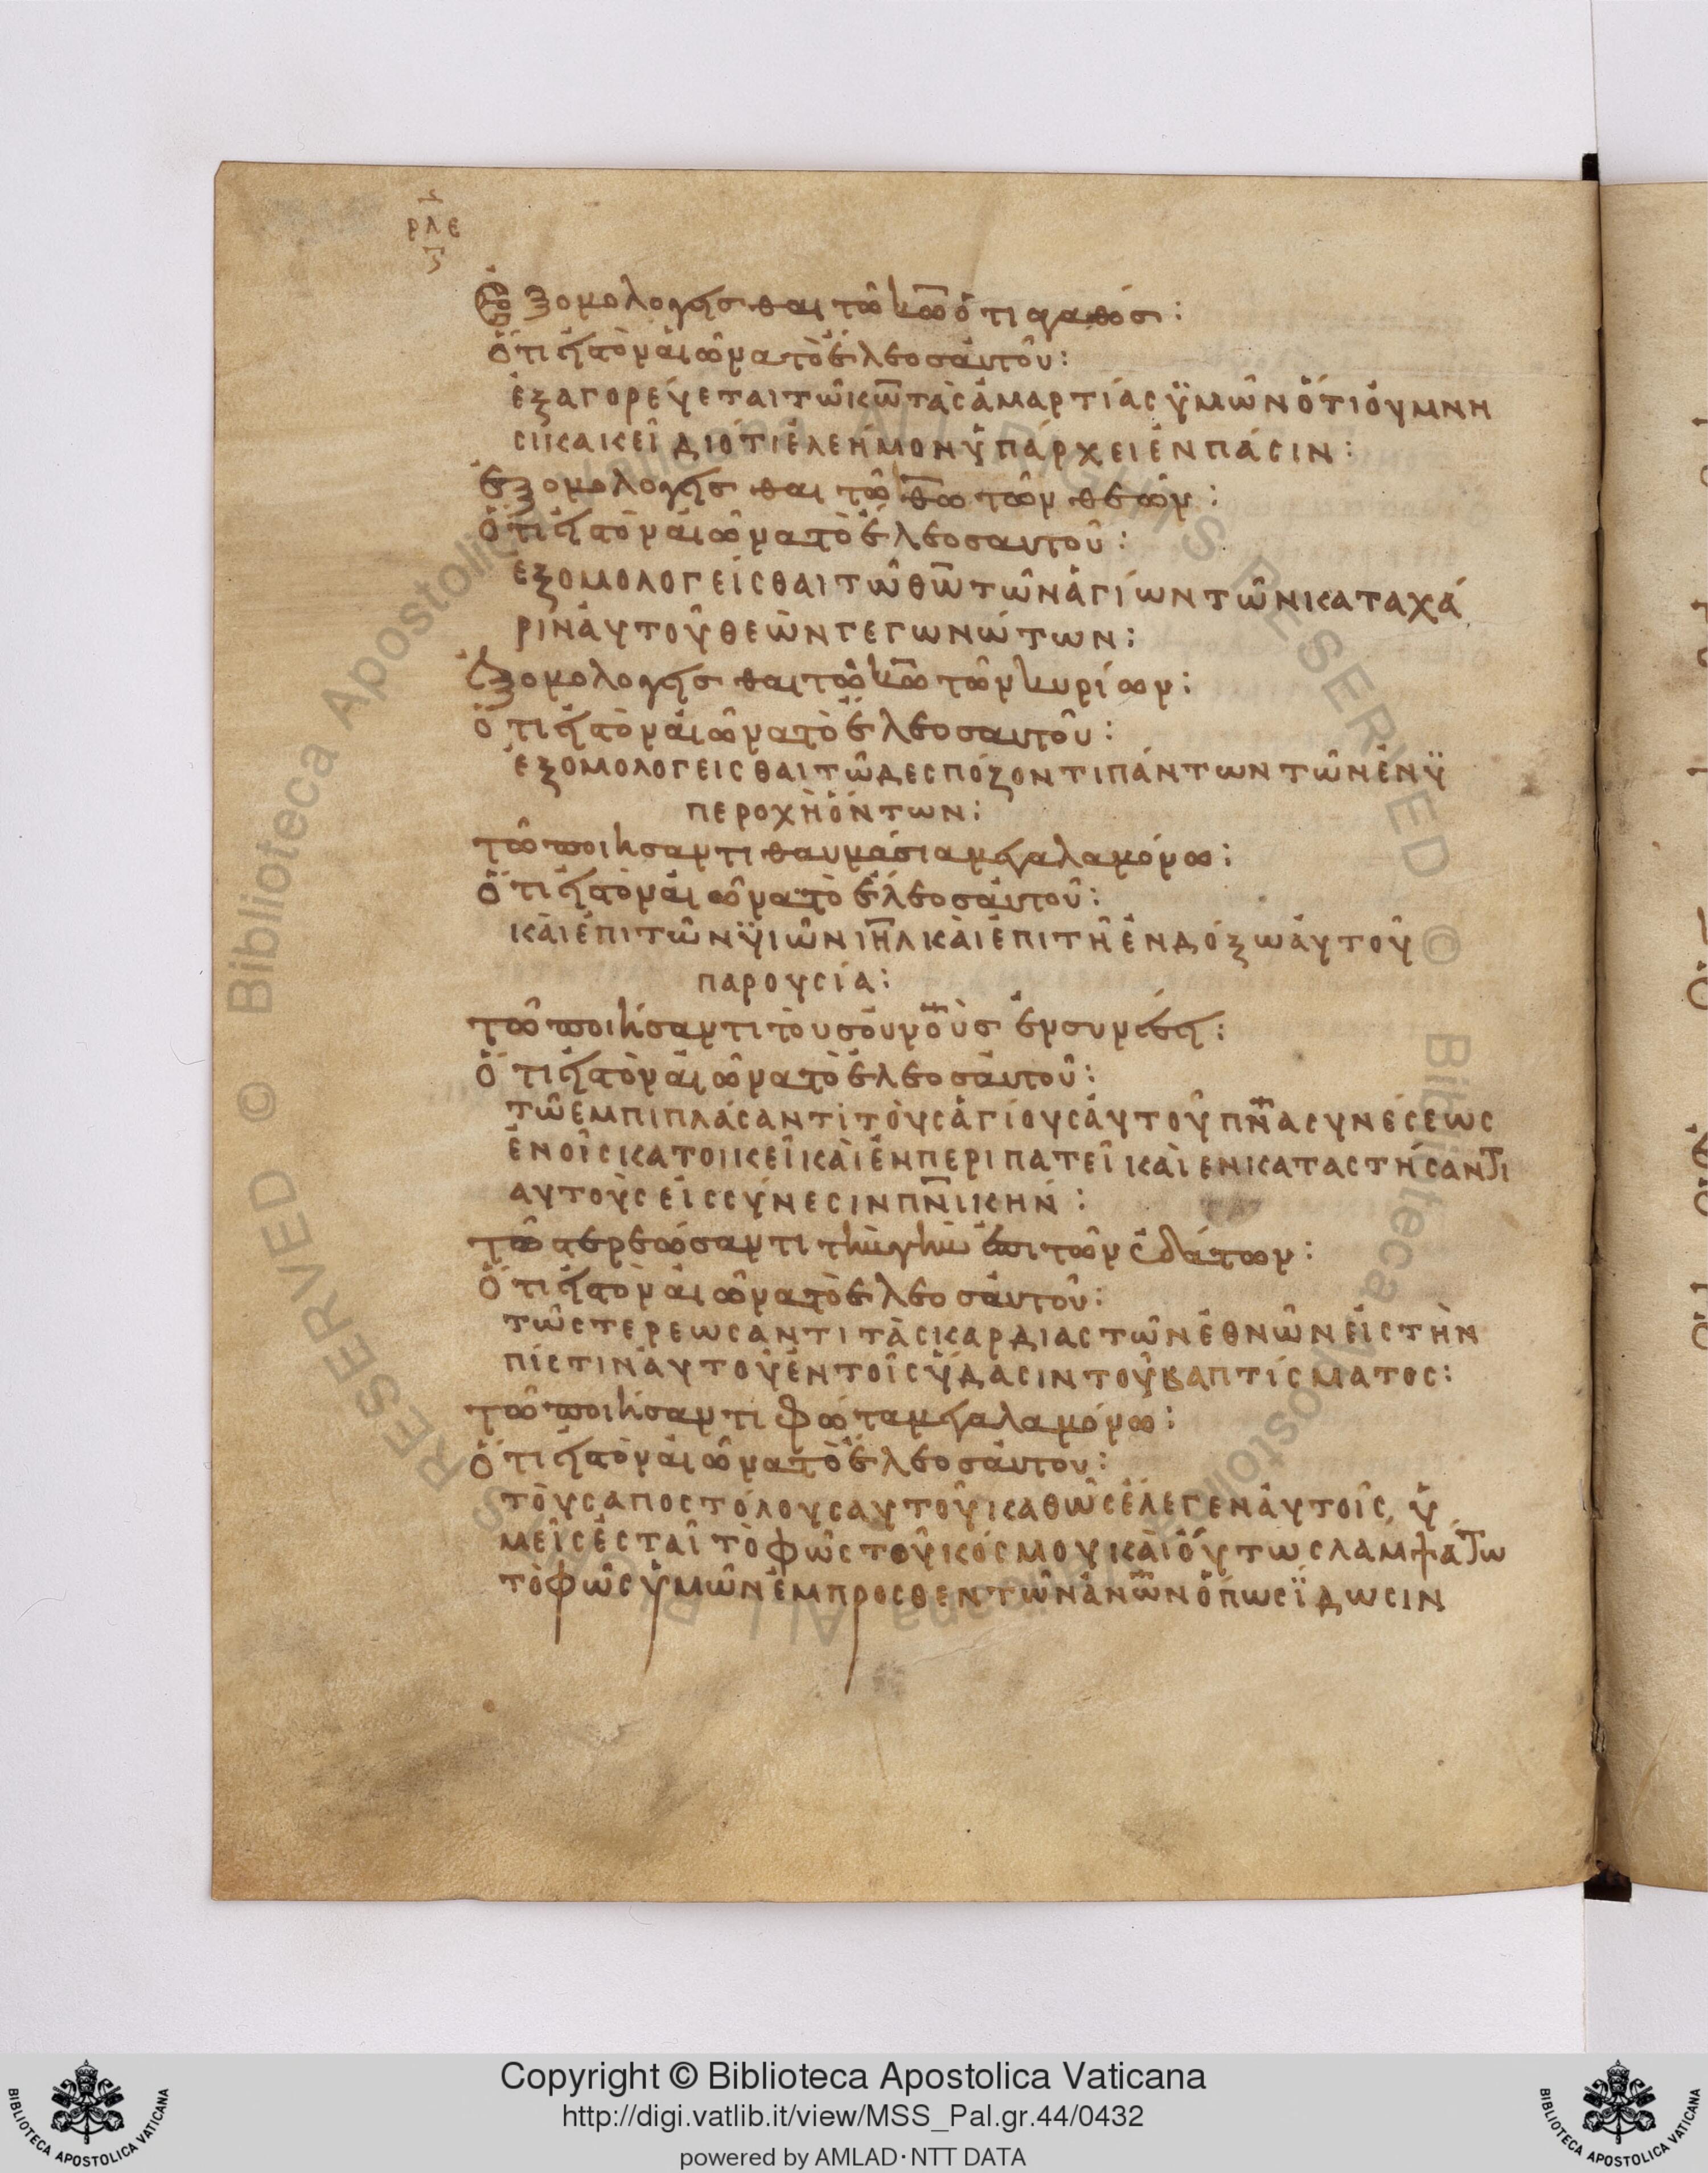 ρλε
Ἐξομολογεῖσθαι τῶ κ̅ω̅ ὅτι ἀγαθός:
ὅτι εἰς τὸν αἰῶνα τὸ ἔλεος αὐτοῦ:
ἐξαγορεύεται τῶ κ̅ω̅ τὰς ἁμαρτίας ὑμῶν ὅτι οὐ μνη
σικακεῖ διότι ἐλεήμον ὑπάρχει ἐν πάσιν:
ἐξομολογεῖσθαι τῶ θ̅ω̅ τῶν θεῶν:
ὅτι εἰς τὸν αἰῶνα τὸ ἔλεος αὐτοῦ:
ἐξομολογείσθαι τῶ θ̅ω̅ τῶν ἁγίων τῶν κατα χά
ριν αὐτοῦ θεὼν γεγωνώτων:
ἐξομολογεῖσθαι τῶ κ̅ω̅ τῶν κυρίων:
ὅτι εἰς τὸν αἰῶνα τὸ ἔλεος αὐτοῦ:
ἐξομολογεισθαι τῶ δεσπόζοντι πάντων τῶν ἐν ὑ
περοχὴ ὄντων:
τῶ ποιησαντι θαυμάσια μεγαλα μόνω:
ὅτι εἰς τὸν αἰῶνα τὸ ἔλεος αὐτοῦ:
κὰι ἐπι τῶν ὑιῶν ι̅η̅λ κὰι ἐπι τῆ ἐνδόξω αὐτοῦ
παρουσία:
τῶ ποιήσαντι τοὺς οὐνοὺς ἐν συνέσει:
ὅτι εἰς τὸν αἰῶνα τὸ ἔλεος αὐτοῦ:
τῶ εμπιπλάσαντι τοὺς ἁγίους αὐτοῦ π̅ν̅α συνέσεως
ἐν οἷς κατοικεῖ κὰι ἐνπεριπατεῖ κὰι ενκαταστήσαντι
αυτοὺς εἰς σύνεσιν π̅ν̅ικήν:
τῶ στερεώσαντι τὴν γὴν ἐπι τῶν ὑδάτων:
ὅτι εἰς τὸν αἰῶνα τὸ ἔλεος αὐτοῦ:
τῶ στερεωσαντι τὰς καρδιας τῶν ἐθνῶν εἰς τὴν
πίστιν αὐτοῦ ἐν τοῖς ὕδασιν τοῦ βαπτίσματος:
τῶ ποιήσαντι φῶτα μεγαλα μόνω:
ὅτι εἰς τὸν αἰῶνα τὸ ἔλεος αὐτου:
τοὺς αποστόλους αυτοῦ καθὼς ἔλεγεν ἀυτοῖς, ὑ
μεῖς ἐσταῖ τὸ φῶς τοῦ κόσμου κὰι οὕτως λαμψάτω
τὸ φῶς ὑμῶν ἐμπροσθεν τῶν ἀν̅ω̅ν ὅπως ἵδωσιν
Copyright © Biblioteca Apostolica Vaticana
http://digi.vatlib.it/view/MSS_Pal.gr.44/0432
powered by AMLAD·NTT DATA